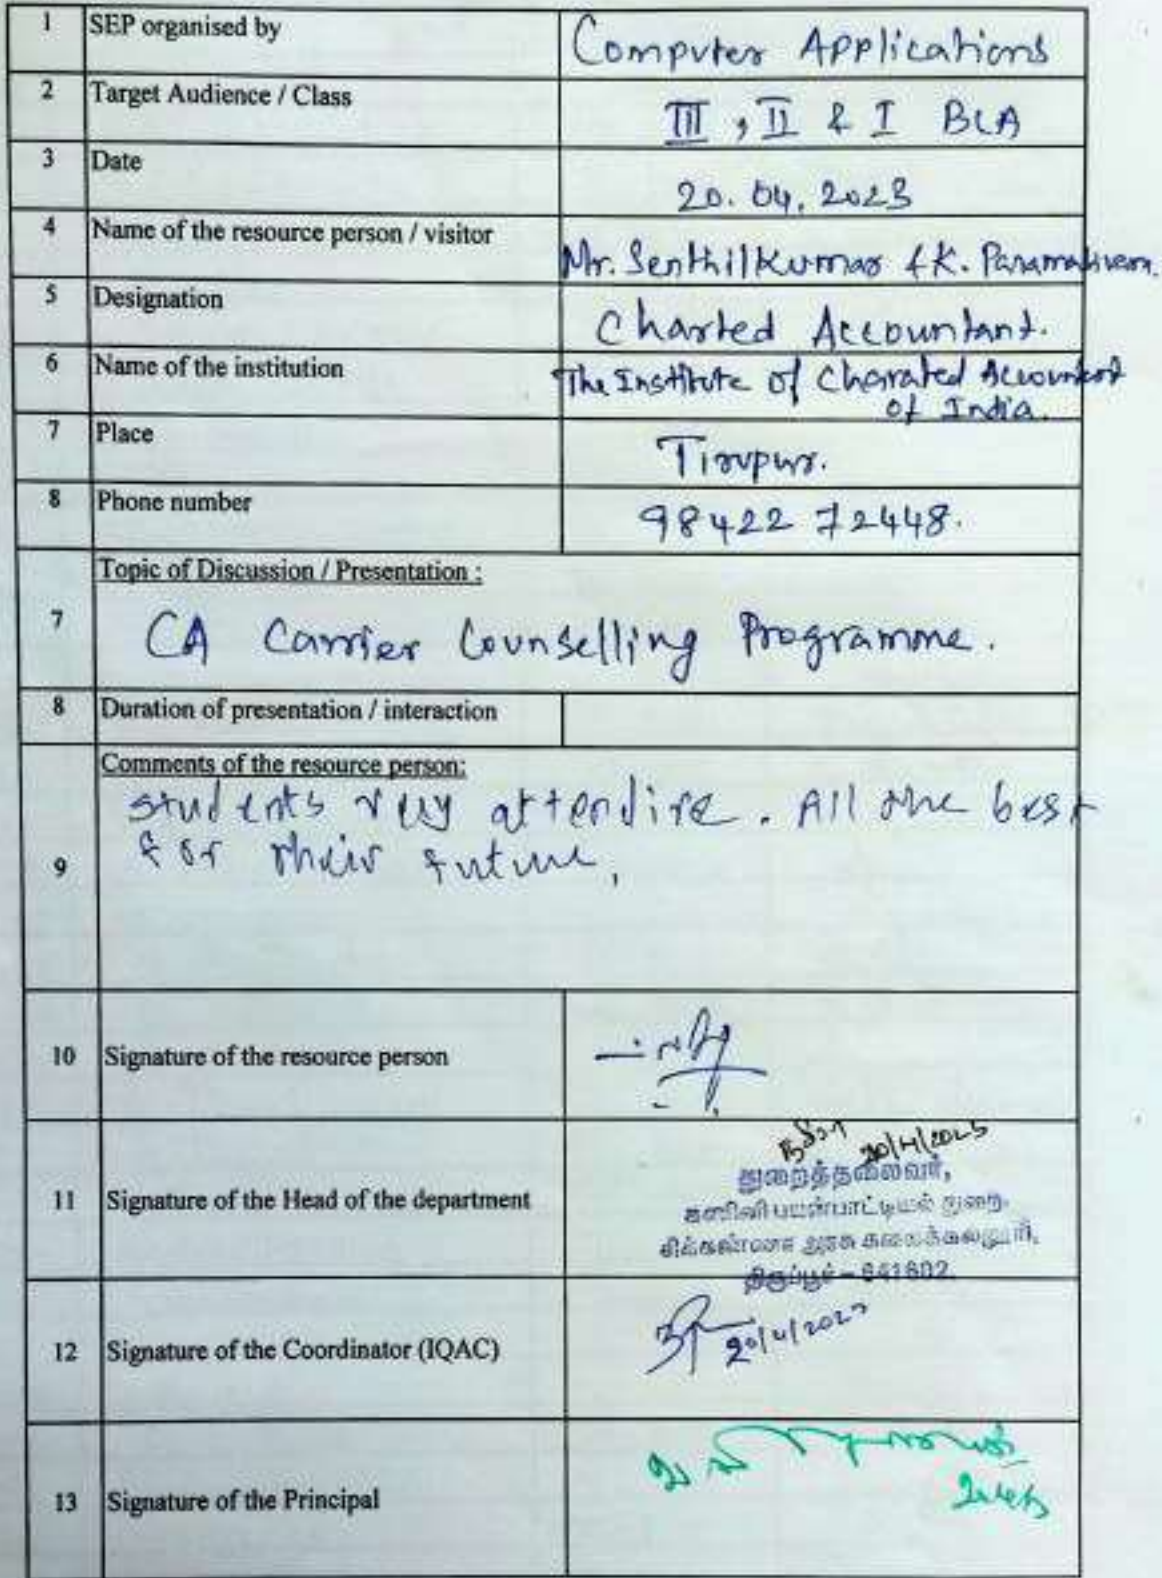 1 SEP organised by Computer Applications
2 Target Audience / Class III, II & I BCA
3 Date 20.04.2023
4 Name of the resource person / visitor Mr. Senthil Kumar & K. Paramasivam.
5 Designation Charted Accountant.
6 Name of the institution The Institute of Charated Accountant
of India.
7 Place Tirupur.
8 Phone number 98422 72448.
Topic of Discussion / Presentation :
7 CA Carrier Counselling Programme.
8 Duration of presentation / interaction
Comments of the resource person:
students very attendive. All the best
9 for their future,
10 Signature of the resource person
20/4/2023
துறைத்தலைவர்,
11 Signature of the Head of the department கணினி பயன்பாட்டியல் துறை,
சிக்கண்ணா அரசு கலைக்கல்லூரி,
திருப்பூர் – 641602.
12 Signature of the Coordinator (IQAC) 20/4/2023
13 Signature of the Principal